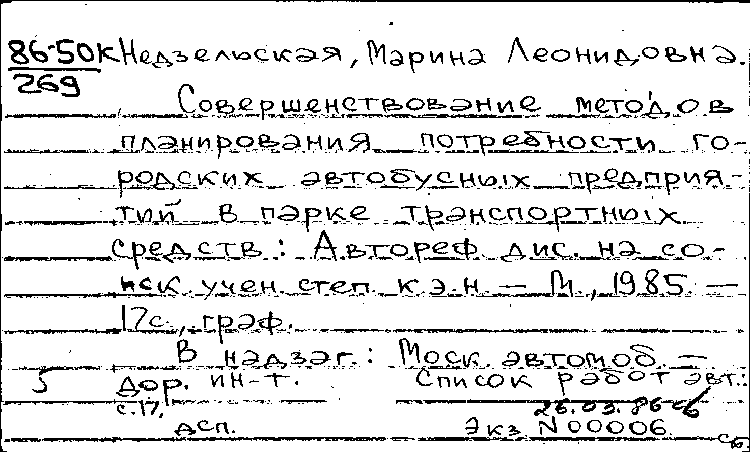 86-50к Недзельская, Марина Леонидовна.
269
Совершенствование методов
планирования потребности го-
родских автобусных предприя-
тий в парке транспортных
средств: Автореф. дис. на со-
иск. учен. степ. к.э.н. — М., 1985. —
17с., граф.
В надзаг.: Моск. автомоб. —
5 дор. ин-т. Список работ авт.:
с.17. 26.03.86
дсп. Экз. N00006.